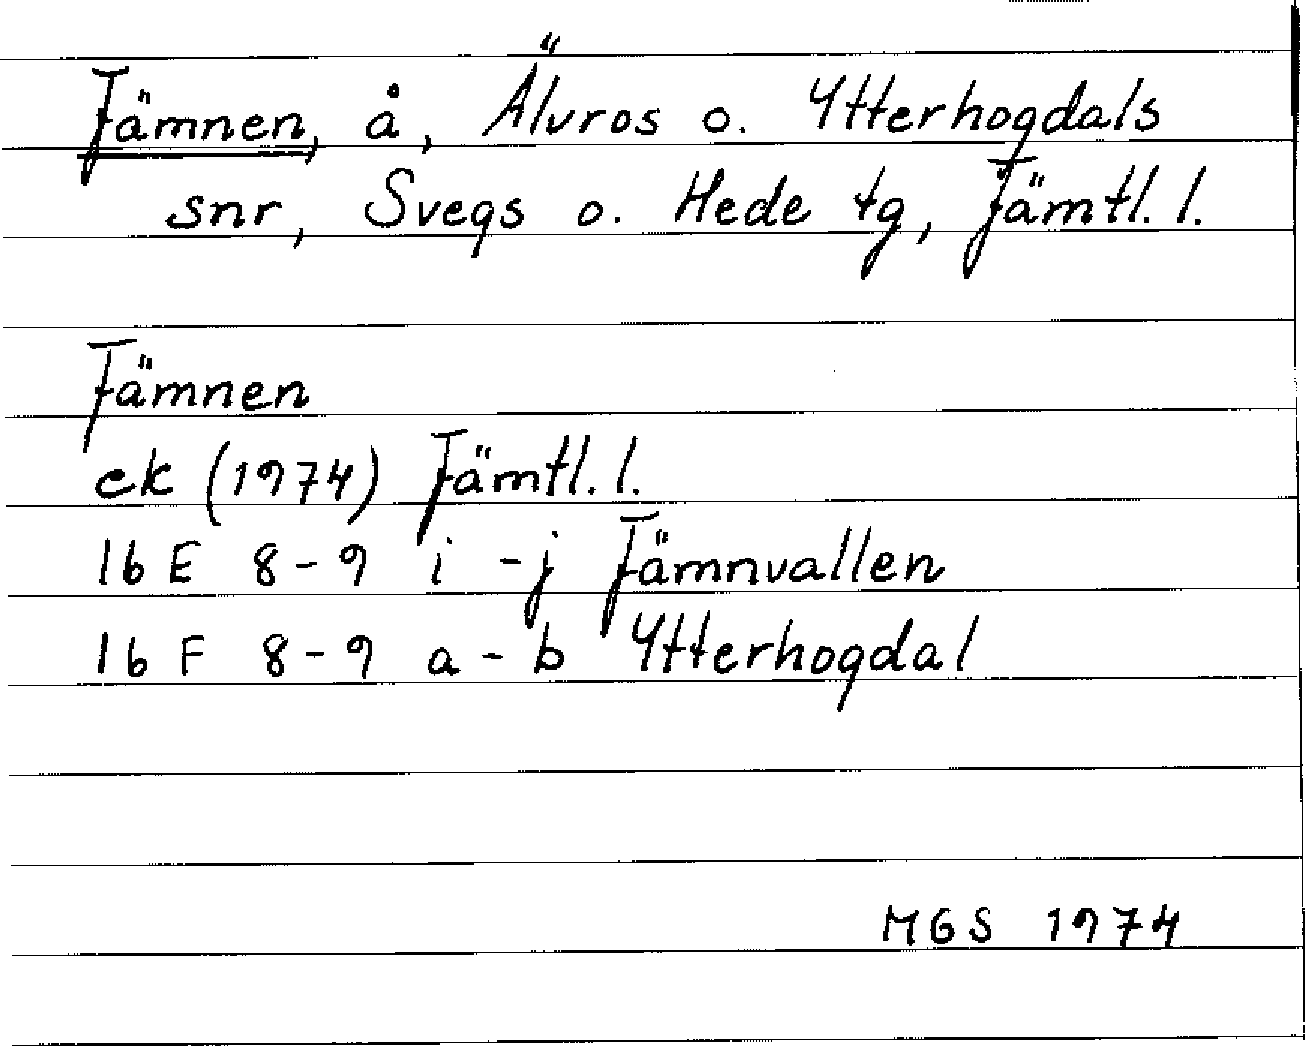 Jämnen, å, Älvros o. Ytterhogdals
snr, Svegs o. Hede tg, Jämtl. l.
Jämnen
ek (1974) Jämtl. l.
16 E 8-9 i -j Jämnvallen
16 F 8-9 a-b Ytterhogdal
MGS 1974